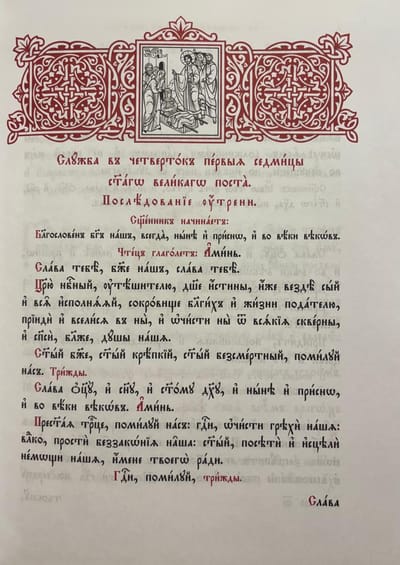 Слꙋ́жба въ четверто́къ пе́рвыѧ седми́цы
ст҃а́гѡ вели́кагѡ поста̀.
Послѣ́дованїе ᲂу҆́трени.
Сщ҃е́нникъ начина́етъ:
Бл҃гослове́нъ бг҃ъ на́шъ, всегда̀, ны́нѣ и҆ при́снѡ, и҆ во вѣ́ки вѣкѡ́въ.
Чте́цъ глаго́летъ: А҆ми́нь.
Сла́ва тебѣ̀, бж҃е на́шъ, сла́ва тебѣ̀.
Цр҃ю̀ нбⷭ҇ный, ᲂу҆тѣ́шителю, дш҃е и҆́стины, и҆́же вездѣ̀ сы́й
и҆ всѧ̑ и҆сполнѧ́ѧй, сокро́вище бл҃ги́хъ и҆ жи́зни пода́телю,
прїидѝ и҆ всели́сѧ въ ны̀, и҆ ѡ҆чи́сти ны̀ ѿ всѧ́кїѧ скве́рны,
и҆ сп҃сѝ, бл҃же, дꙋ́шы на́шѧ.
Ст҃ы́й бж҃е, ст҃ы́й крѣ́пкїй, ст҃ы́й безсме́ртный, поми́лꙋй
на́съ. Три́жды.
Сла́ва ѻ҆ц҃ꙋ̀, и҆ сн҃ꙋ, и҆ ст҃о́мꙋ дх҃ꙋ, и҆ ны́нѣ и҆ при́снѡ,
и҆ во вѣ́ки вѣкѡ́въ. А҆ми́нь.
Прест҃а́ѧ трⷪ҇це, поми́лꙋй на́съ: гдⷭ҇и, ѡ҆чи́сти грѣхѝ на́шѧ:
влⷣко, простѝ беззакѡ́нїѧ на̑ша: ст҃ы́й, посѣтѝ и҆ и҆сцѣлѝ
не́мѡщи на́шѧ, и҆́мене твоегѡ̀ ра́ди.
Гдⷭ҇и, поми́лꙋй, три́жды.
Сла́ва